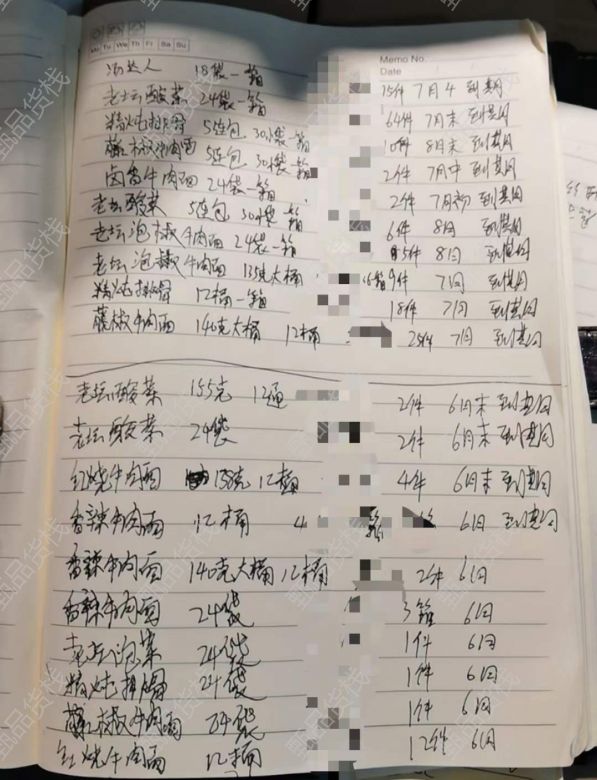 Mo Tu We Th Fr Sa Su
Memo No.
Date
汤达人 18袋一箱 15件 7月4 到期
老坛酸菜 24袋一箱 64件 7月末 到期
精炖排骨 5连包 30小袋一箱 10件 8月末 到期
藤椒牛肉面 5连包 30小袋一箱 2件 7月中 到期
卤香牛肉面 24袋一箱 2件 7月初 到期
老坛酸菜 5连包 30小袋一箱 6件 8月 到期
老坛泡椒牛肉面 24袋一箱 5件 8月 到期
老坛泡椒牛肉面 135克大桶 6箱9件 7月 到期
精炖排骨 12桶一箱 18件 7月 到期
藤椒牛肉面 140克大桶 12桶 25件 7月 到期
老坛酸菜 155克 12通 2件 6月末 到期
老坛酸菜 24袋 2件 6月末 到期
红烧牛肉面 135克 12桶 4件 6月末 到期
香辣牛肉面 12桶 4 箱 6月 到期
香辣牛肉面 140克大桶 12桶 2件 6月
香辣牛肉面 24袋 3箱 6月
老坛泡菜 24袋 1件 6月
精炖排骨 24袋 1件 6月
藤椒牛肉面 24袋 1件 6月
红烧牛肉面 12桶 12件 6月